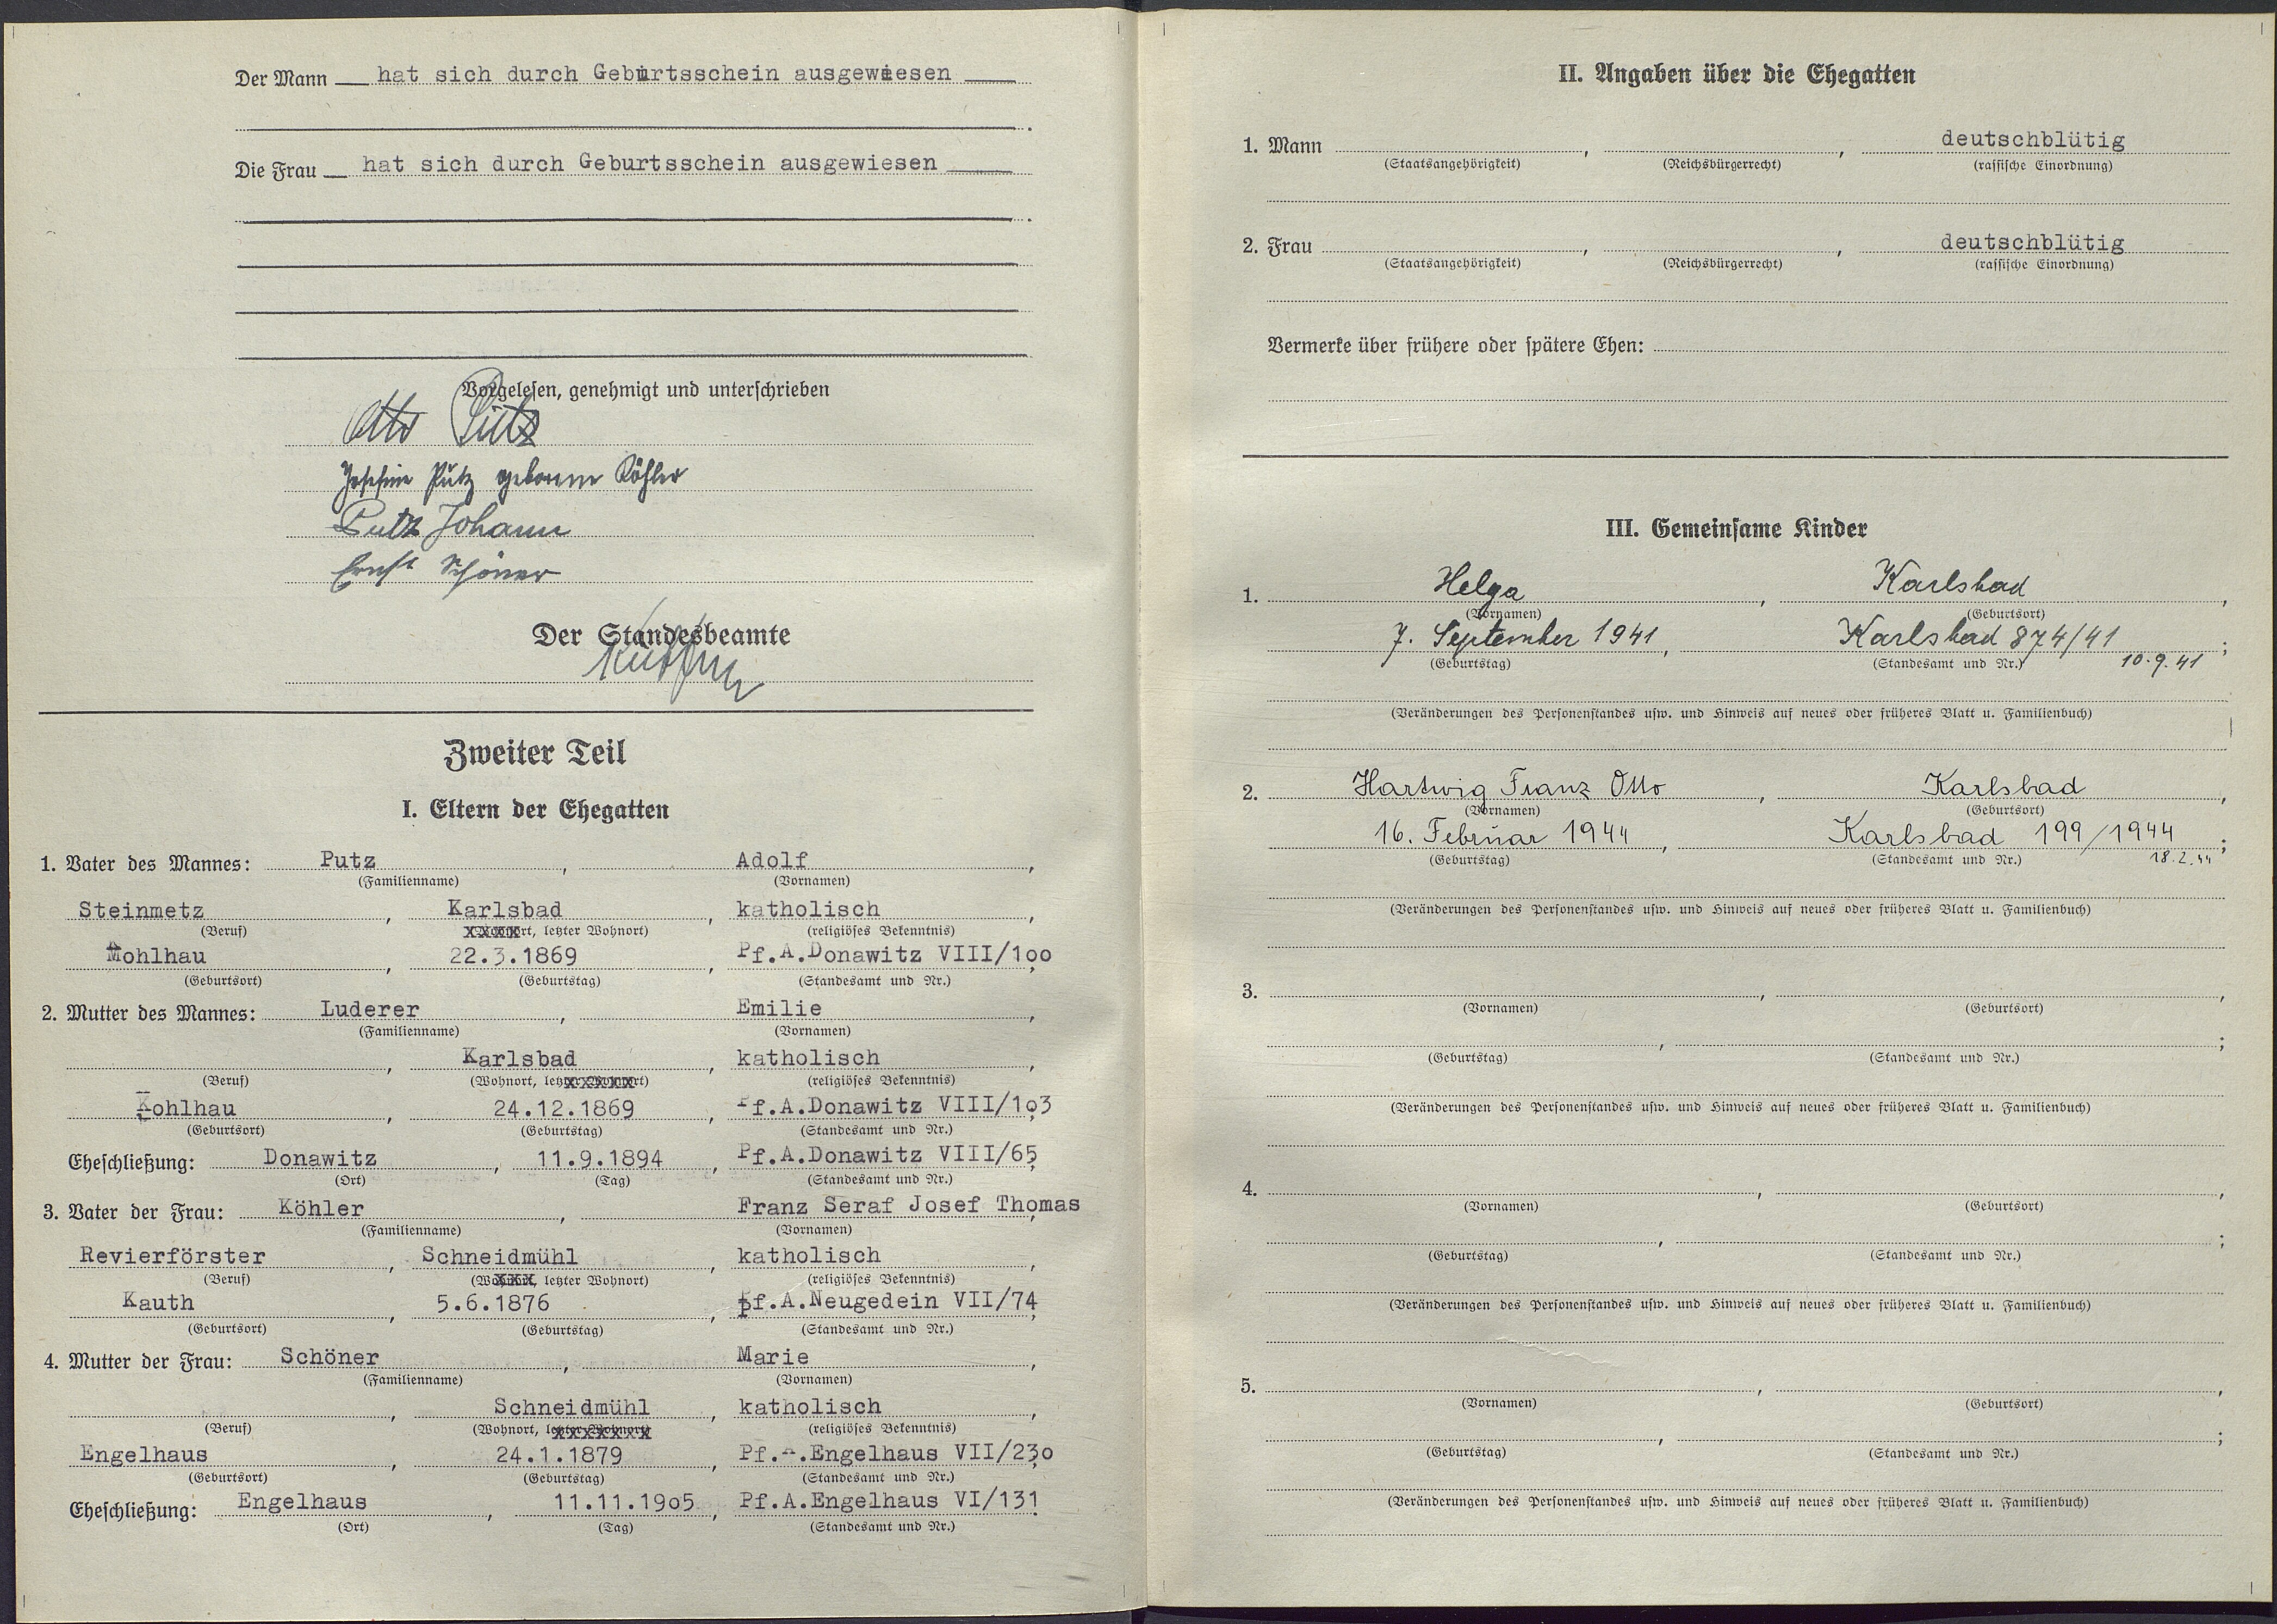 Der Mann hat sich durch Geburtsschein ausgewiesen
.
Die Frau hat sich durch Geburtsschein ausgewiesen
.
Vorgelesen, genehmigt und unterschrieben
Otto Putz
Josefine Putz geborene Köhler
Putz Johann
Ernst Schöner
Der Standesbeamte
Zweiter Teil
I. Eltern der Ehegatten
1. Vater des Mannes: Putz, Adolf,
(Familienname) (Vornamen)
Steinmetz, Karlsbad, katholisch,
(Beruf) (Wohnort, letzter Wohnort) (religiöses Bekenntnis)
Kohlhau, 22.3.1869, Pf.A.Donawitz VIII/1oo,
(Geburtsort) (Geburtstag) (Standesamt und Nr.)
2. Mutter des Mannes: Luderer, Emilie,
(Familienname) (Vornamen)
, Karlsbad, katholisch,
(Beruf) (Wohnort, letzter Wohnort) (religiöses Bekenntnis)
Kohlhau, 24.12.1869, Pf.A.Donawitz VIII/1o3,
(Geburtsort) (Geburtstag) (Standesamt und Nr.)
Eheschließung: Donawitz, 11.9.1894, Pf.A.Donawitz VIII/65,
(Ort) (Tag) (Standesamt und Nr.)
3. Vater der Frau: Köhler, Franz Seraf Josef Thomas,
(Familienname) (Vornamen)
Revierförster, Schneidmühl, katholisch,
(Beruf) (Wohnort, letzter Wohnort) (religiöses Bekenntnis)
Kauth, 5.6.1876, Pf.A.Neugedein VII/74,
(Geburtsort) (Geburtstag) (Standesamt und Nr.)
4. Mutter der Frau: Schöner, Marie,
(Familienname) (Vornamen)
, Schneidmühl, katholisch,
(Beruf) (Wohnort, letzter Wohnort) (religiöses Bekenntnis)
Engelhaus, 24.1.1879, Pf.A.Engelhaus VII/23o,
(Geburtsort) (Geburtstag) (Standesamt und Nr.)
Eheschließung: Engelhaus, 11.11.19o5, Pf.A.Engelhaus VI/131.
(Ort) (Tag) (Standesamt und Nr.)
II. Angaben über die Ehegatten
1. Mann , , deutschblütig
(Staatsangehörigkeit) (Reichsbürgerrecht) (rassische Einordnung)
2. Frau , , deutschblütig
(Staatsangehörigkeit) (Reichsbürgerrecht) (rassische Einordnung)
Vermerke über frühere oder spätere Ehen:
III. Gemeinsame Kinder
1. Helga, Karlsbad,
(Vornamen) (Geburtsort)
7. September 1941, Karlsbad 874/41;
(Geburtstag) (Standesamt und Nr.) 10.9.41
(Veränderungen des Personenstandes usw. und Hinweis auf neues oder früheres Blatt u. Familienbuch)
2. Hartwig Franz Otto, Karlsbad,
(Vornamen) (Geburtsort)
16. Februar 1944, Karlsbad 199/1944;
(Geburtstag) (Standesamt und Nr.) 18.2.44
(Veränderungen des Personenstandes usw. und Hinweis auf neues oder früheres Blatt u. Familienbuch)
3. , ,
(Vornamen) (Geburtsort)
, ;
(Geburtstag) (Standesamt und Nr.)
(Veränderungen des Personenstandes usw. und Hinweis auf neues oder früheres Blatt u. Familienbuch)
4. , ,
(Vornamen) (Geburtsort)
, ;
(Geburtstag) (Standesamt und Nr.)
(Veränderungen des Personenstandes usw. und Hinweis auf neues oder früheres Blatt u. Familienbuch)
5. , ,
(Vornamen) (Geburtsort)
, ;
(Geburtstag) (Standesamt und Nr.)
(Veränderungen des Personenstandes usw. und Hinweis auf neues oder früheres Blatt u. Familienbuch)